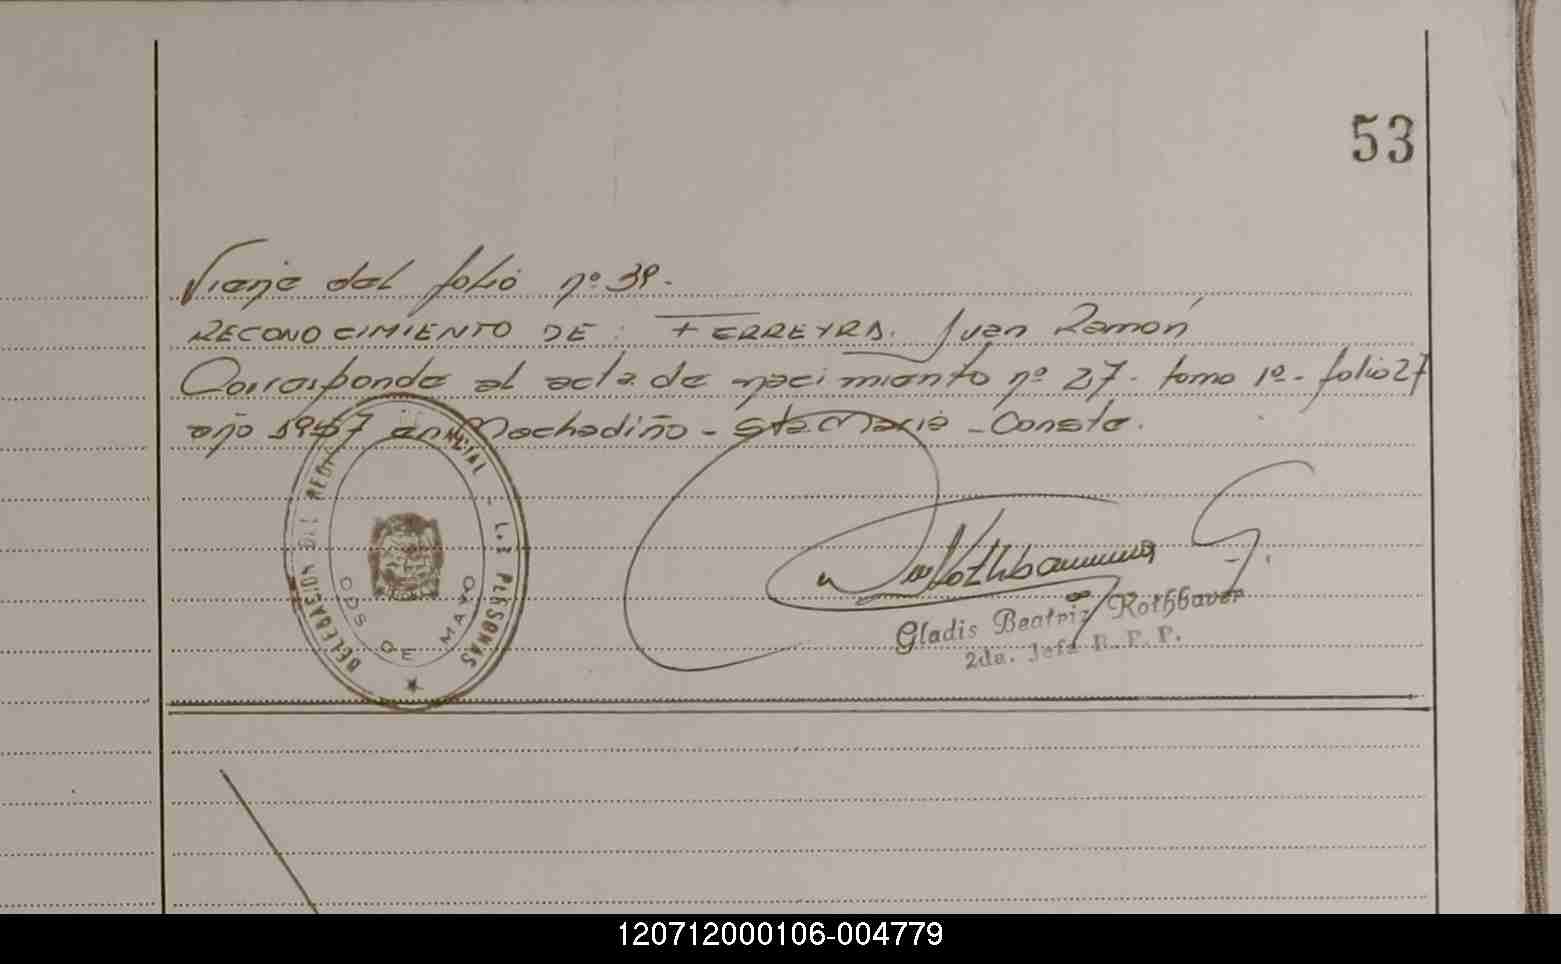 53
Viene del folio nº 39.
RECONOCIMIENTO DE: FERREYRA. Juan Ramón
Corresponde al acta de nacimiento nº 27. tomo 1º. folio 27
año 1967 en Machadiño - Sta. Maria - Conste.
DELEGACION DEL REG. PROVINCIAL DE LAS PERSONAS
DOS DE MAYO
Rothbauer G.
Gladis Beatriz Rothbauer
2da. Jefa R.P.P.
120712000106-004779